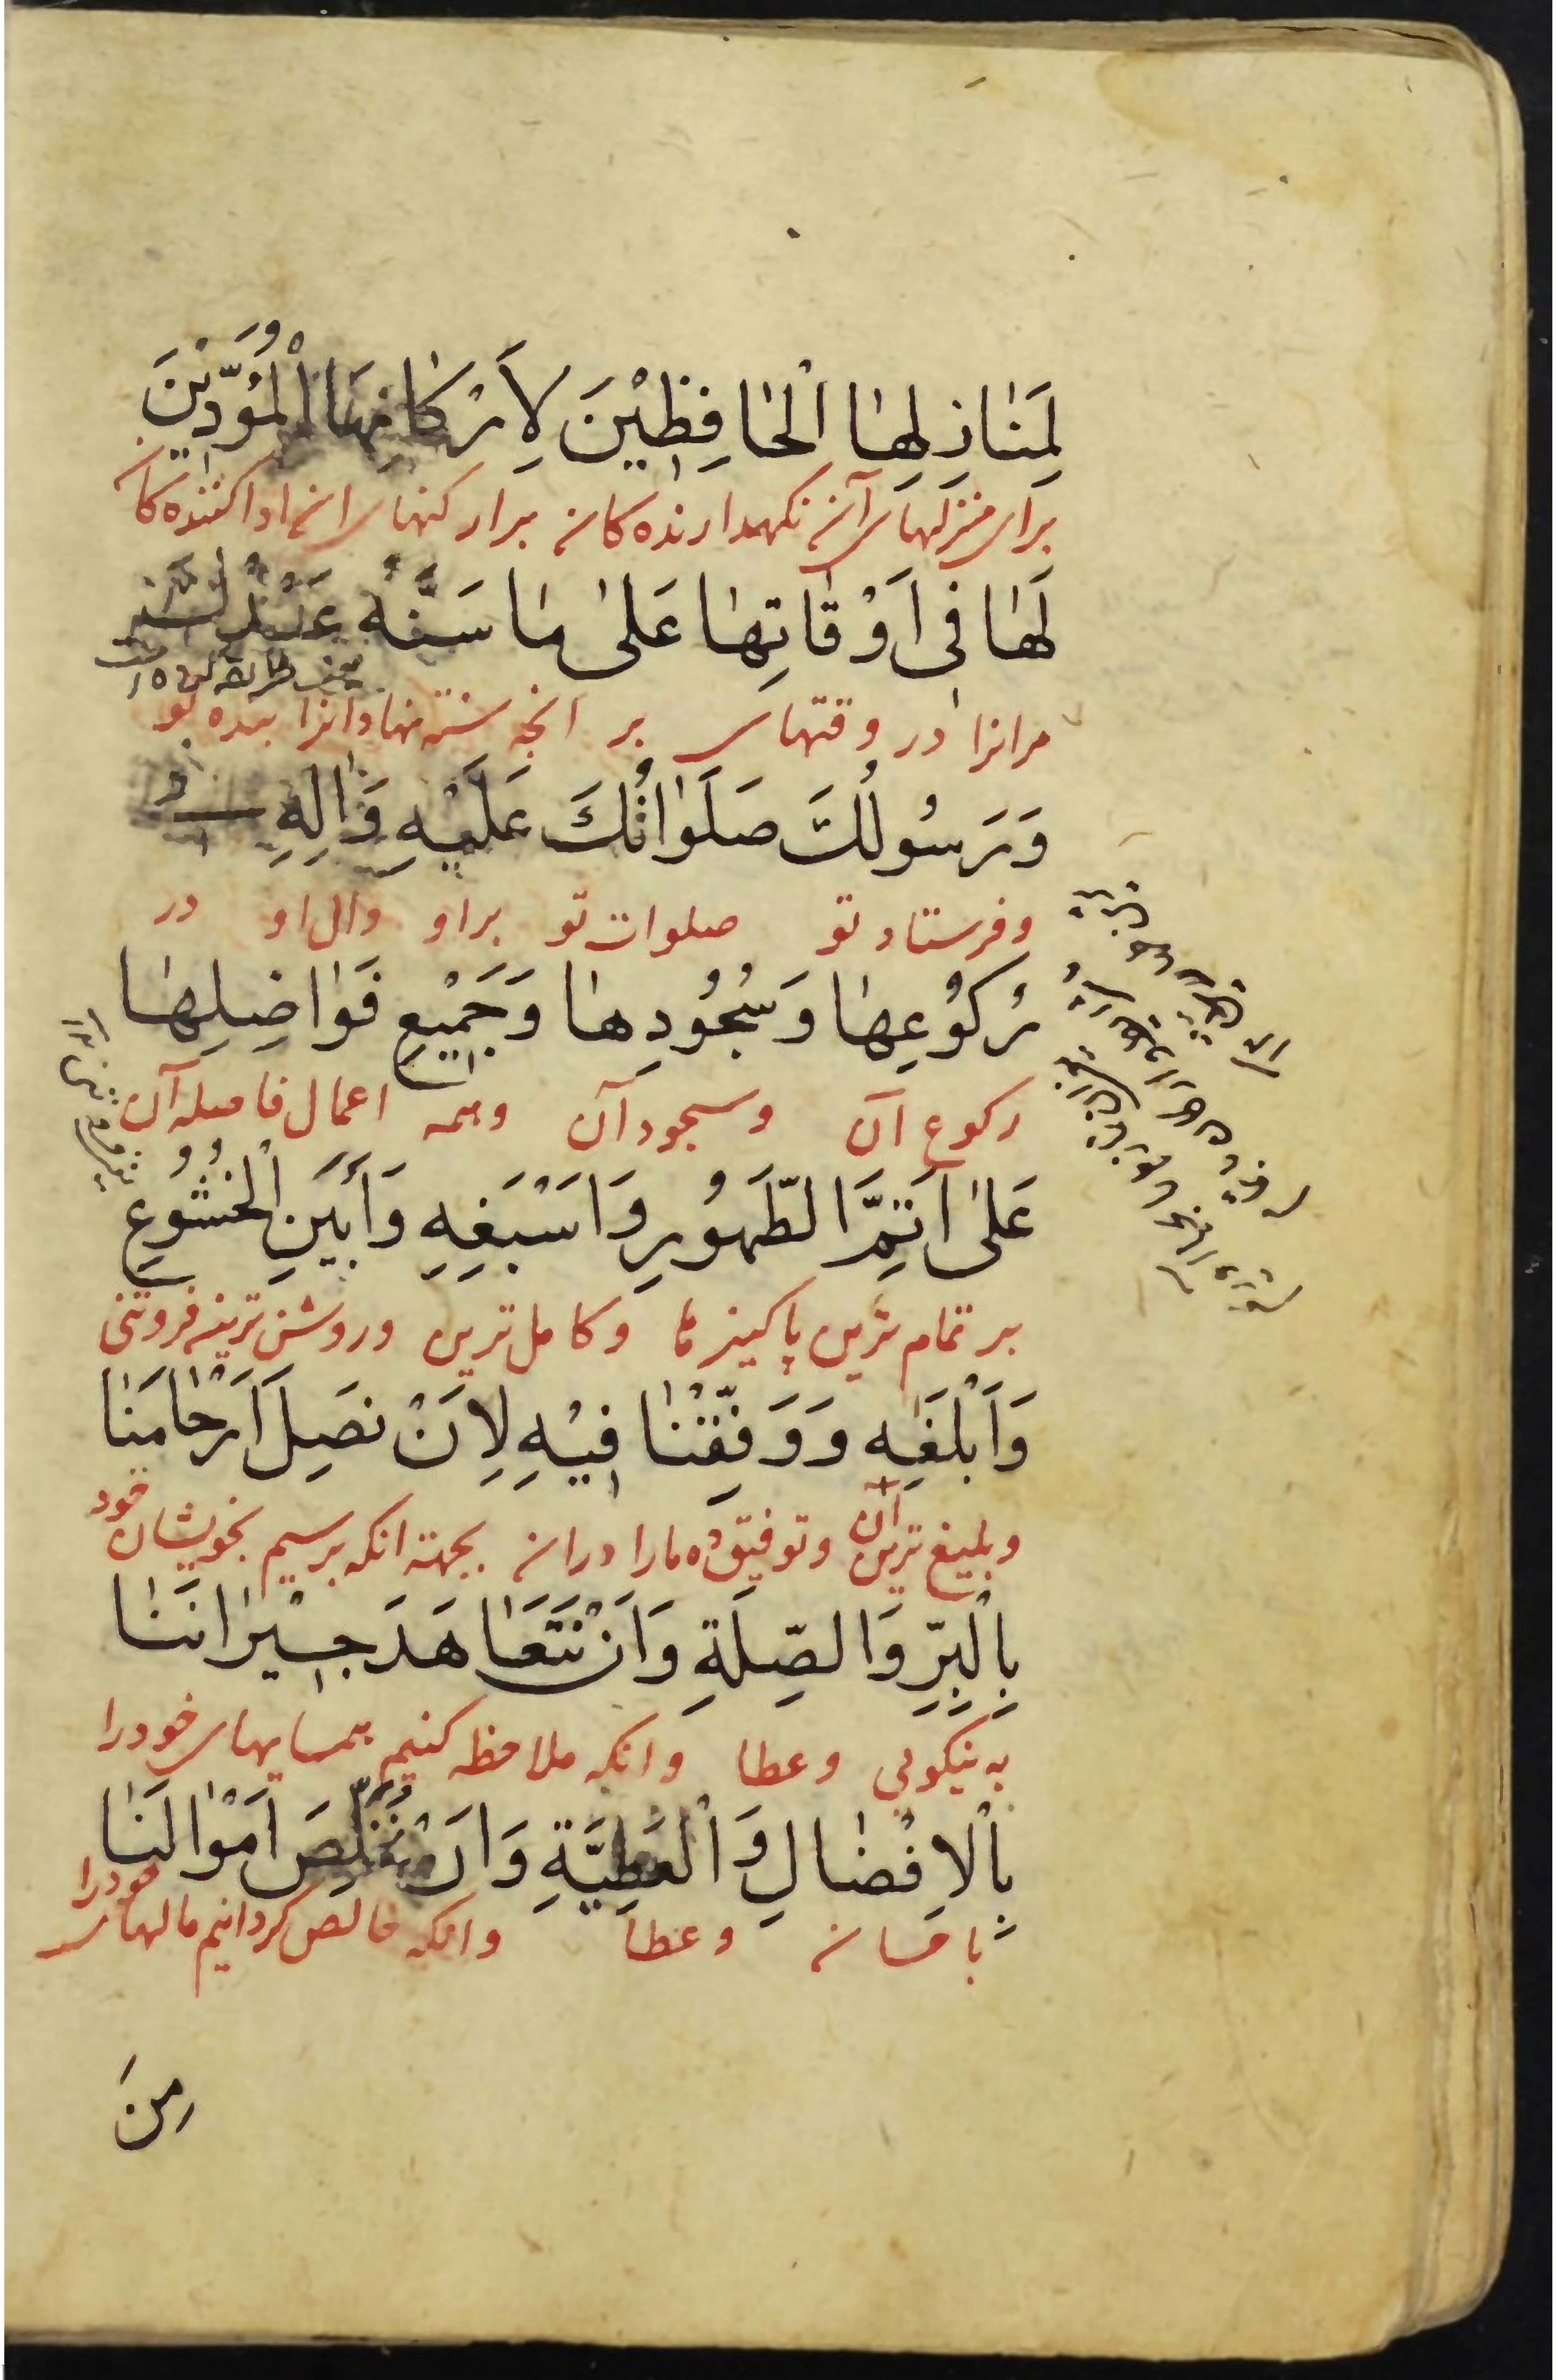 لِمَنٰازِلِهٰا اْلحٰافِظِيْنَ لِاَرْكٰانِهٰا اْلمُؤَدّيٖنَ
برای منزلهای آن نگهدارنده کان برار کنهای ان ادا کننده کان
لَهٰا فی اَوْقٰاتِهٰا عَلیٰ مٰا سَنَّهُ عَبْدُكَ
مرانرا در وقتهای بر انچه سنته نهاد انرا بنده تو
وَرَسُولُكَ صَلَوٰاتُكَ عَلَيْهِ وَاٰلِهِ فی
و فرستاد تو صلوات تو بر او وال او در
رُكوُعِهٰا وَسُجُودِهٰا وَجَمٖيْعِ فَوٰاضِلِهٰا
رکوع ان و سجود آن و همه اعمال فاضله آن
عَلیٰ اَتَمِّ الطَّهُورِ وَاَسْبَغِهِ وَاَبْيَنِ اْلخُشُوعِ
بر تمام ترین پاکیزها و کامل ترین و روشن ترین فروتنی
وَاَبْلَغِهِ وَوَفِّقْنٰا فٖيْهِ لِاَنْ نَصِلَ اَرْحٰامَنٰا
و بلیغ ترین آن و توفیق ده مارا دران بجهته انکه برسیم بخویشان خود
بِاْلبِرِّ وَالصِّلَةِ وَاَنْ نَتَعٰاهَدَ جٖيْرٰانَنٰا
به نیکوئی و عطا و انکه ملاحظه کنیم همسایهای خود را
بِاْلاِفْضٰالِ وَاْلعَطِيَّةِ وَاَنْ نُخَلِّصَ اَمْوٰالَنٰا
باحسان و عطا و انکه خالص کردانیم مالهای خودرا
مِنَ